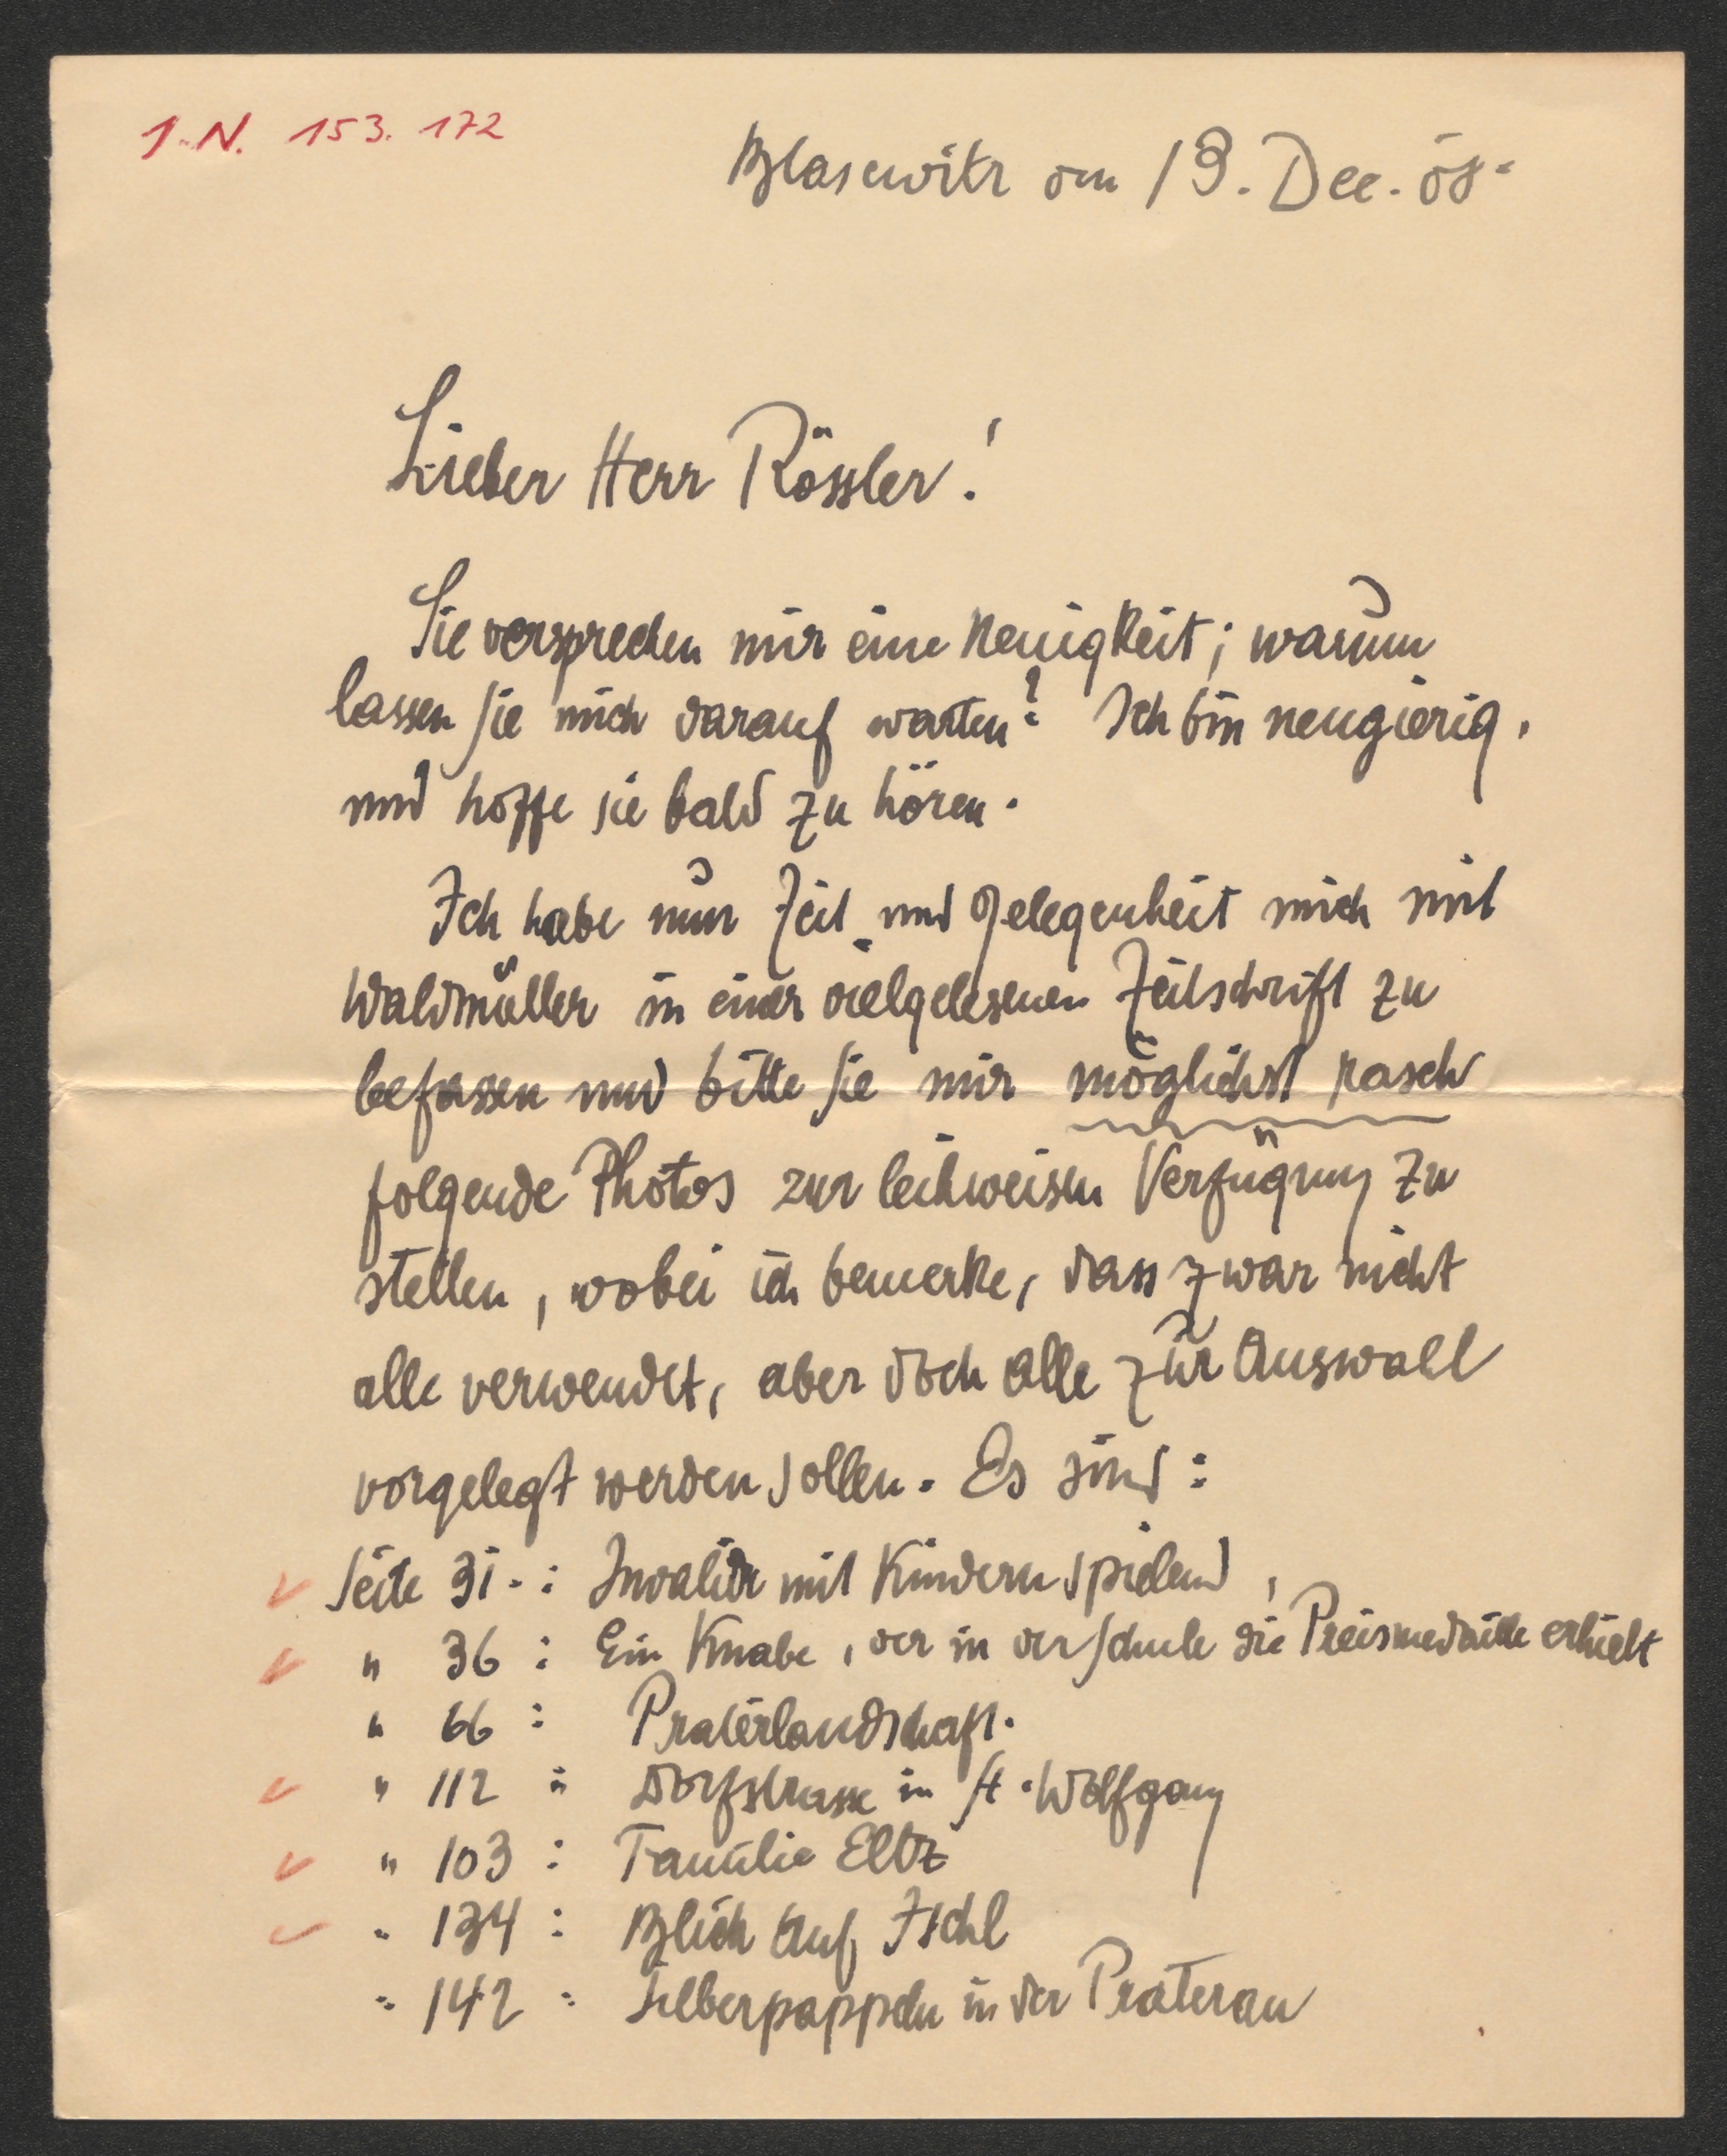 J.N. 153.172
Blasewitz am 13. Dec. 08.
Lieber Herr Rössler!
Sie versprechen mir eine Neuigkeit; warum
lassen Sie mich darauf warten? Ich bin neugierig,
und hoffe sie bald zu hören.
Ich habe nun Zeit und Gelegenheit mich mit
Waldmüller in einer vielgelesenen Zeitschrift zu
befassen und bitte Sie mir möglichst rasch
folgende Photos zur leihweisen Verfügung zu
stellen, wobei ich bemerke, dass zwar nicht
alle verwendet, aber doch alle zur Auswahl
vorgelegt werden sollen. Es sind:
Seite 31.: Invalide mit Kindern spielend,
" 36: Ein Knabe, der in der Schule die Preismedaille erhielt
" 66: Praterlandschaft.
" 112: Dorfstrasse in St. Wolfgang
" 103: Familie Eltz
" 134: Blick auf Ischl
" 142: Silberpappeln in der Praterau